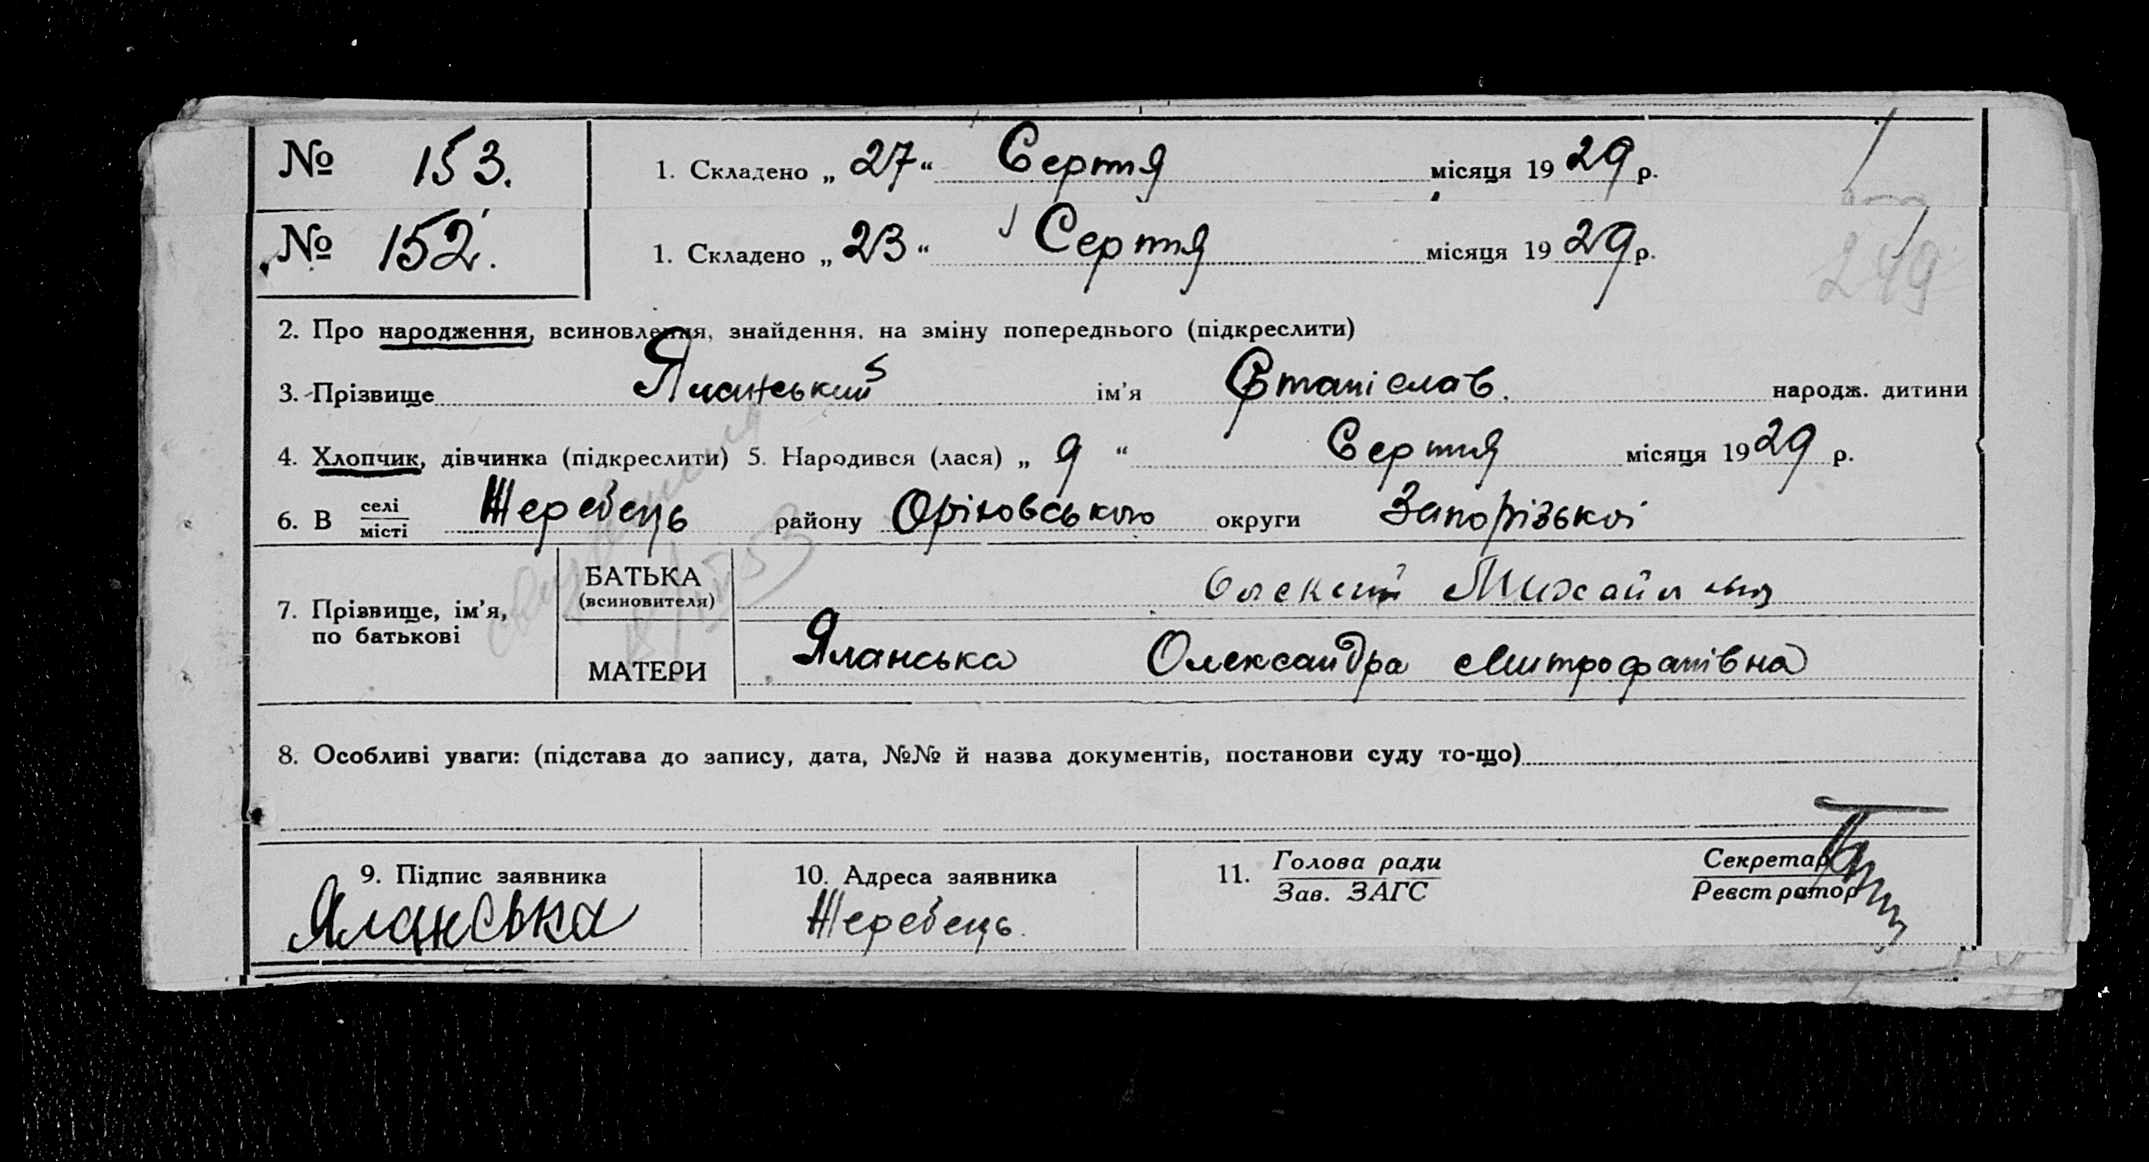 № 153. 1. Складено „ 27 “ Серпня місяця 1929 р.
№ 152. 1. Складено „ 23 “ Серпня місяця 1929 р.
249
2. Про народження, всиновлення, знайдення, на зміну попереднього (підкреслити)
3. Прізвище Яланський ім'я Станіслав. народж. дитини
4. Хлопчик, дівчинка (підкреслити) 5. Народився (лася) „ 9 “ Серпня місяця 1929 р.
6. В селі/місті Жеребець району Оріховського округи Запорізької
7. Прізвище, ім'я, по батькові
БАТЬКА (всиновителя) Олексій
МАТЕРИ Яланська Олександра Митрофанівна
8. Особливі уваги: (підстава до запису, дата, №№ й назва документів, постанови суду то-що)
9. Підпис заявника 10. Адреса заявника 11. Голова ради/Зав. ЗАГС Секретар/Реєстратор
Яланська Жеребець.